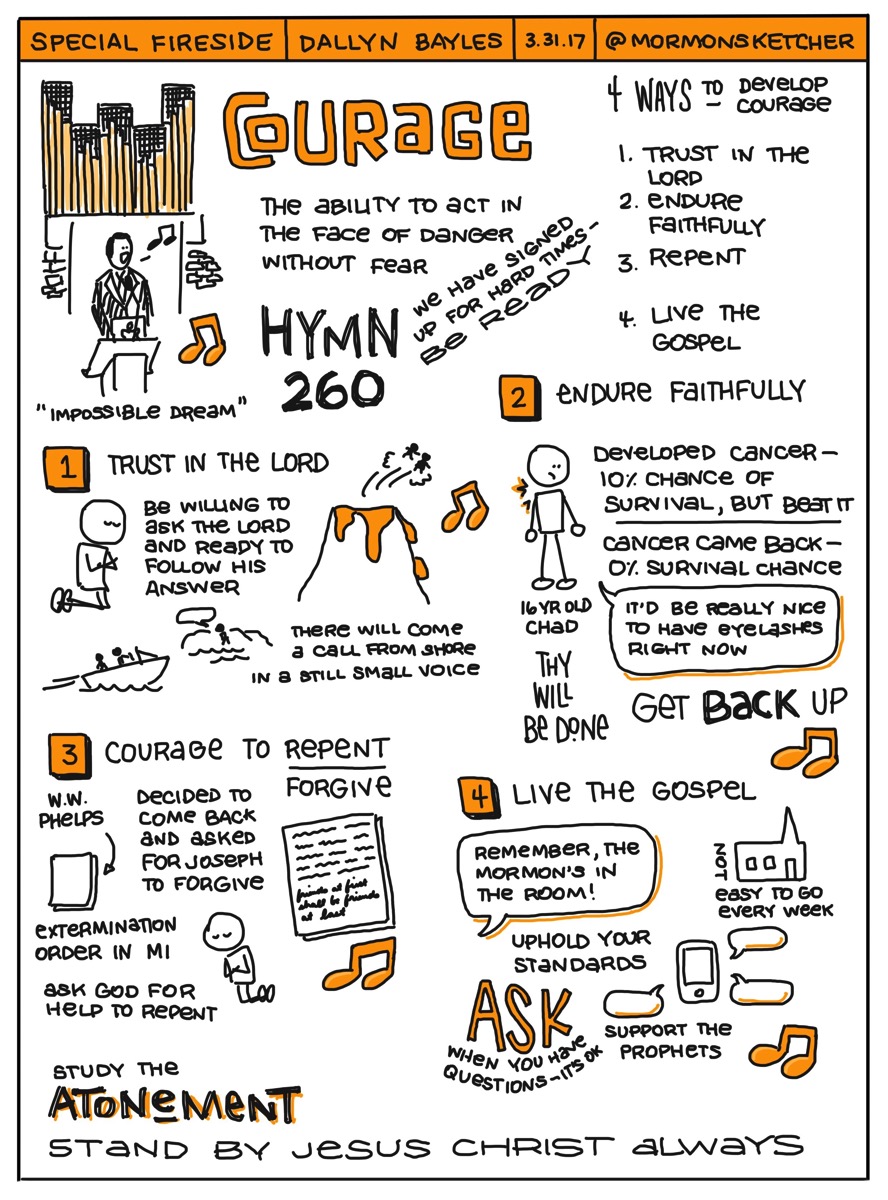 SPECIAL FIRESIDE
DALLYN BAYLES
3.31.17
@MORMONSKETCHER
COURAGE
THE ABILITY TO ACT IN
THE FACE OF DANGER
WITHOUT FEAR
"IMPOSSIBLE DREAM"
HYMN
260
WE HAVE SIGNED
UP FOR HARD TIMES-
BE READY
4 WAYS TO DEVELOP
COURAGE
1. TRUST IN THE
LORD
2. ENDURE
FAITHFULLY
3. REPENT
4. LIVE THE
GOSPEL
1 TRUST IN THE LORD
BE WILLING TO
ASK THE LORD
AND READY TO
FOLLOW HIS
ANSWER
THERE WILL COME
A CALL FROM SHORE
IN A STILL SMALL VOICE
2 ENDURE FAITHFULLY
DEVELOPED CANCER-
10% CHANCE OF
SURVIVAL, BUT BEAT IT
CANCER CAME BACK-
0% SURVIVAL CHANCE
16 YR OLD
CHAD
IT'D BE REALLY NICE
TO HAVE EYELASHES
RIGHT NOW
THY
WILL
BE DONE
GET BACK UP
3 COURAGE TO REPENT
FORGIVE
W.W.
PHELPS
DECIDED TO
COME BACK
AND ASKED
FOR JOSEPH
TO FORGIVE
friends at first
shall be friends
at last
EXTERMINATION
ORDER IN MI
ASK GOD FOR
HELP TO REPENT
4 LIVE THE GOSPEL
REMEMBER, THE
MORMON'S IN
THE ROOM!
NOT
EASY TO GO
EVERY WEEK
UPHOLD YOUR
STANDARDS
ASK
WHEN YOU HAVE
QUESTIONS-IT'S OK
SUPPORT THE
PROPHETS
STUDY THE
ATONEMENT
STAND BY JESUS CHRIST ALWAYS